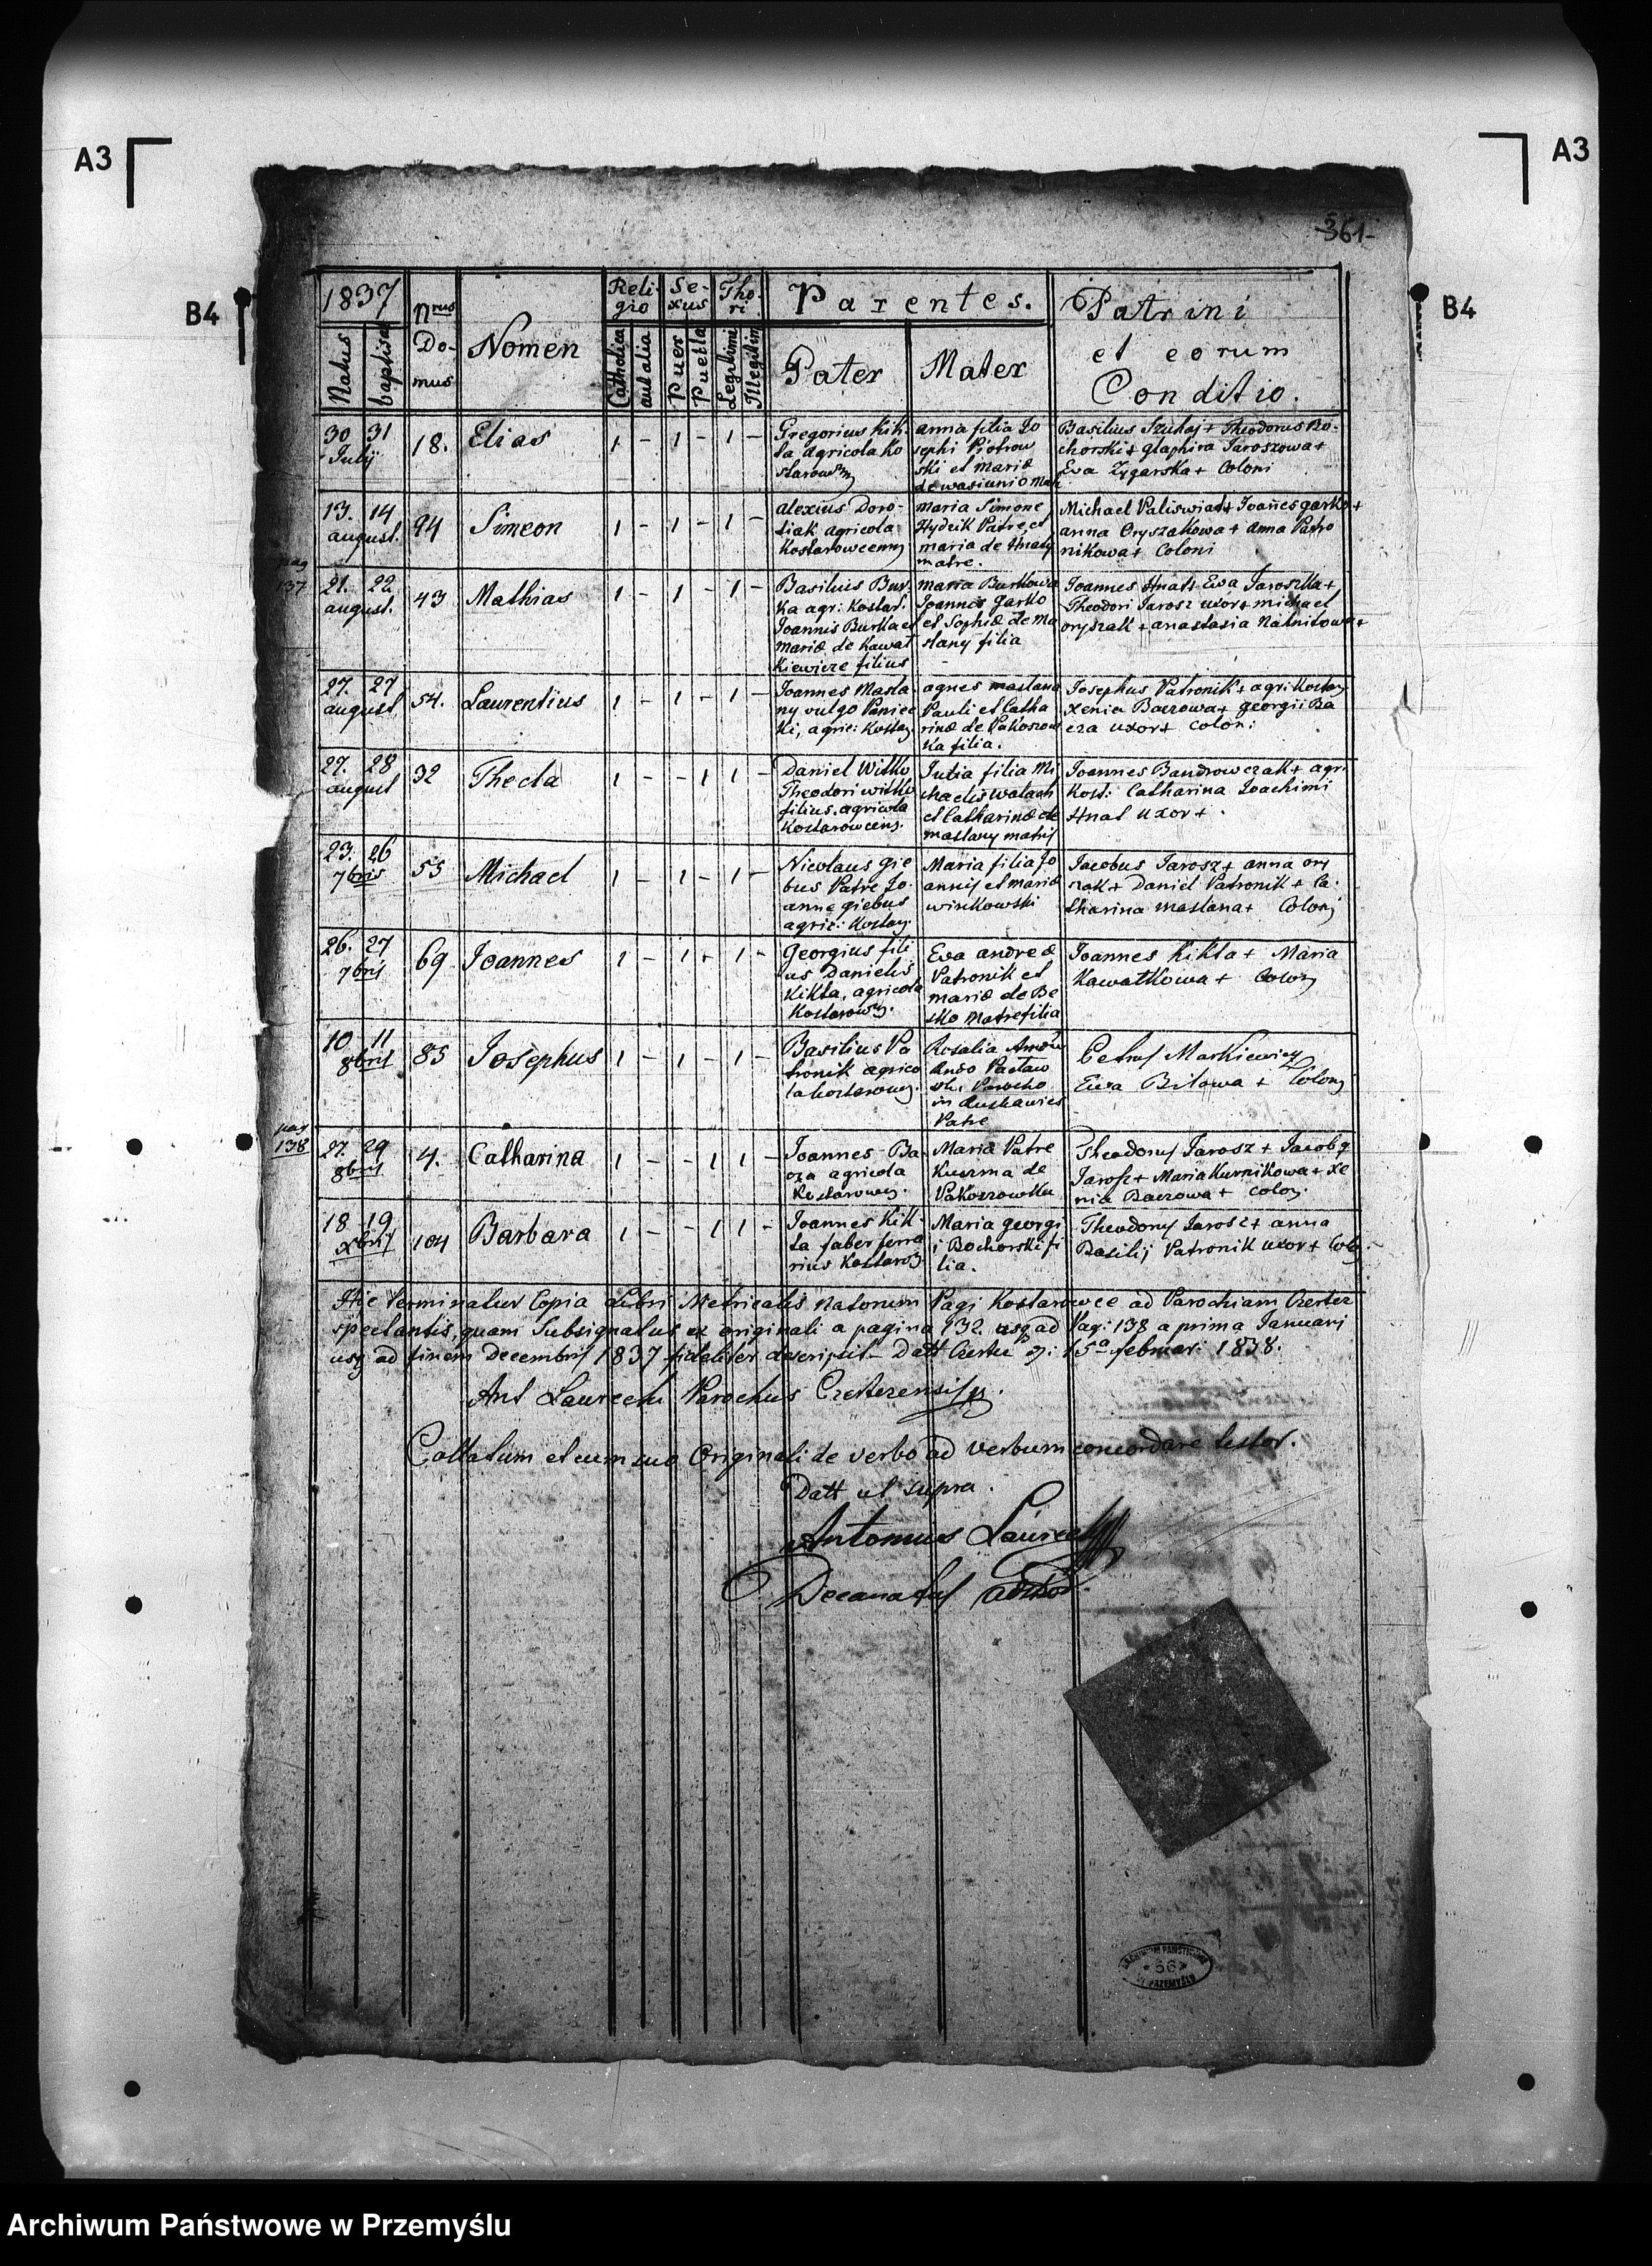 A3
A3
B4
B4
361-
1837
Natus
baptisa
Nrus
Do-
mus
Nomen
Reli-
gio
Catholica
aut alia
Se-
xus
Puer
Puella
Tho-
ri
Legitimi
Illegitim
Parentes.
Pater
Mater
Patrini
et eorum
Conditio.
30 31
Julij
18.
Elias
1 - 1 - 1 -
Gregorius Kik-
ta agricola Ko
starows
anna filia Jo
sephi Piotrow
ski et Mariæ
de wasiunio Mah
Basilius Szuhaj + Theodorus Bo-
chorski + glaphira Jaroszowa +
Eva Zygarska + Coloni
13. 14
august.
94
Simeon
1 - 1 - 1 -
alexius Doro-
tiak agricola
Kostarowcens
maria Simone
Hydzik Patre, et
maria de Hnaty
matre.
Michael Paliswiat + Joañes garko +
anna Oryszakowa + anna Patro
nikowa + Coloni
pag
137
21. 22
august.
43
Mathias
1 - 1 - 1 -
Basilius Bur-
ka agr: Kostar:
Joannis Burka et
mariæ de Kawat
Kiewicze filius
maria Burkowa
Joannis Garko
et Sophiæ de Ma
slany filia
Joannes Hnat + Eva Jaroszka +
Theodori Jarosz uxor + michael
oryszak + anastasia Nahnitowa +
27. 27
august
54.
Laurentius
1 - 1 - 1 -
Joannes Masla
ny vulgo Paniec
ki, agric: Kostar
agnes maslana
Pauli et Catha
rinæ de Pakoszow
ka filia.
Josephus Patronik + agri: Kostar
Xenia Baczowa + georgii Ba
cza uxor + colon:
27. 28
august
32
Thecla
1 - - 1 1 -
Daniel Witko
Theodori witko
filius, agricola
Kostarowcens.
Julia filia Mi
chaelis watach
et Catharinæ de
maslany matris
Joannes Bandrowczak + agr:
Kost: Catharina Joachimi
Hnat uxor +
23. 26
7bris
53
Michael
1 - 1 - 1 -
Nicolaus gie
bus Patre Jo-
anne giebus
agric: Kostar
Maria filia Jo
annis et mariæ
winkowski
Jacobus Jarosz + anna ory
szak + Daniel Patronik + Ca-
tharina maslana + Coloni
26. 27
7bris
69
Joannes
1 - 1 - 1 -
Georgius fili
us Danielis
Kikta, agricola
Kostarows.
Eva andreæ
Patronik et
mariæ de Be
sko Matre filia
Joannes Kikta + Maria
Kawatkowa + Coloni
10 11
8bris
85
Josephus
1 - 1 - 1 -
Basilius Pa
tronik agrico
la kostarows.
Rosalia
in
Patre
Petrus Markiewicz
Eva Bilowa + Coloni
pag
138
27. 29
8bris
4.
Catharina
1 - - 1 1 -
Joannes Ba
cza agricola
Kostarows.
Maria Patre
Kuzma de
Pakoszowka
Theodorus Jarosz + Jacobus
Jarosz + Maria Kurnikowa + Xe
nia Baczowa + colon.
18 19
Xbris
104
Barbara
1 - - 1 1 -
Joannes Kik-
ta faber ferra
rius Kostarow
Maria georgi
i Bochorski fi
lia.
Theodorus Jarosz + anna
Basilij Patronik uxor + Colo
Hic terminatur Copia Libri Metricalis Natorum Pagi Kostarowce ad Parochiam Czertez
spectantis, quam Subsignatus ex originali a pagina 132. usq ad Pag: 138 a prima Januarij
usq ad finem Decembris 1837 fideliter descripsit. Datt Czertez 15a februar: 1838.
Ant Laurecki Parochus Czertezensis
Collatum et cum suo Originali de verbo ad verbum concordare testor.
Datt ut supra.
Antonius Laurecki
Decanatus
ARCHIWUM PAŃSTWOWE
56
W PRZEMYŚLU
Archiwum Państwowe w Przemyślu